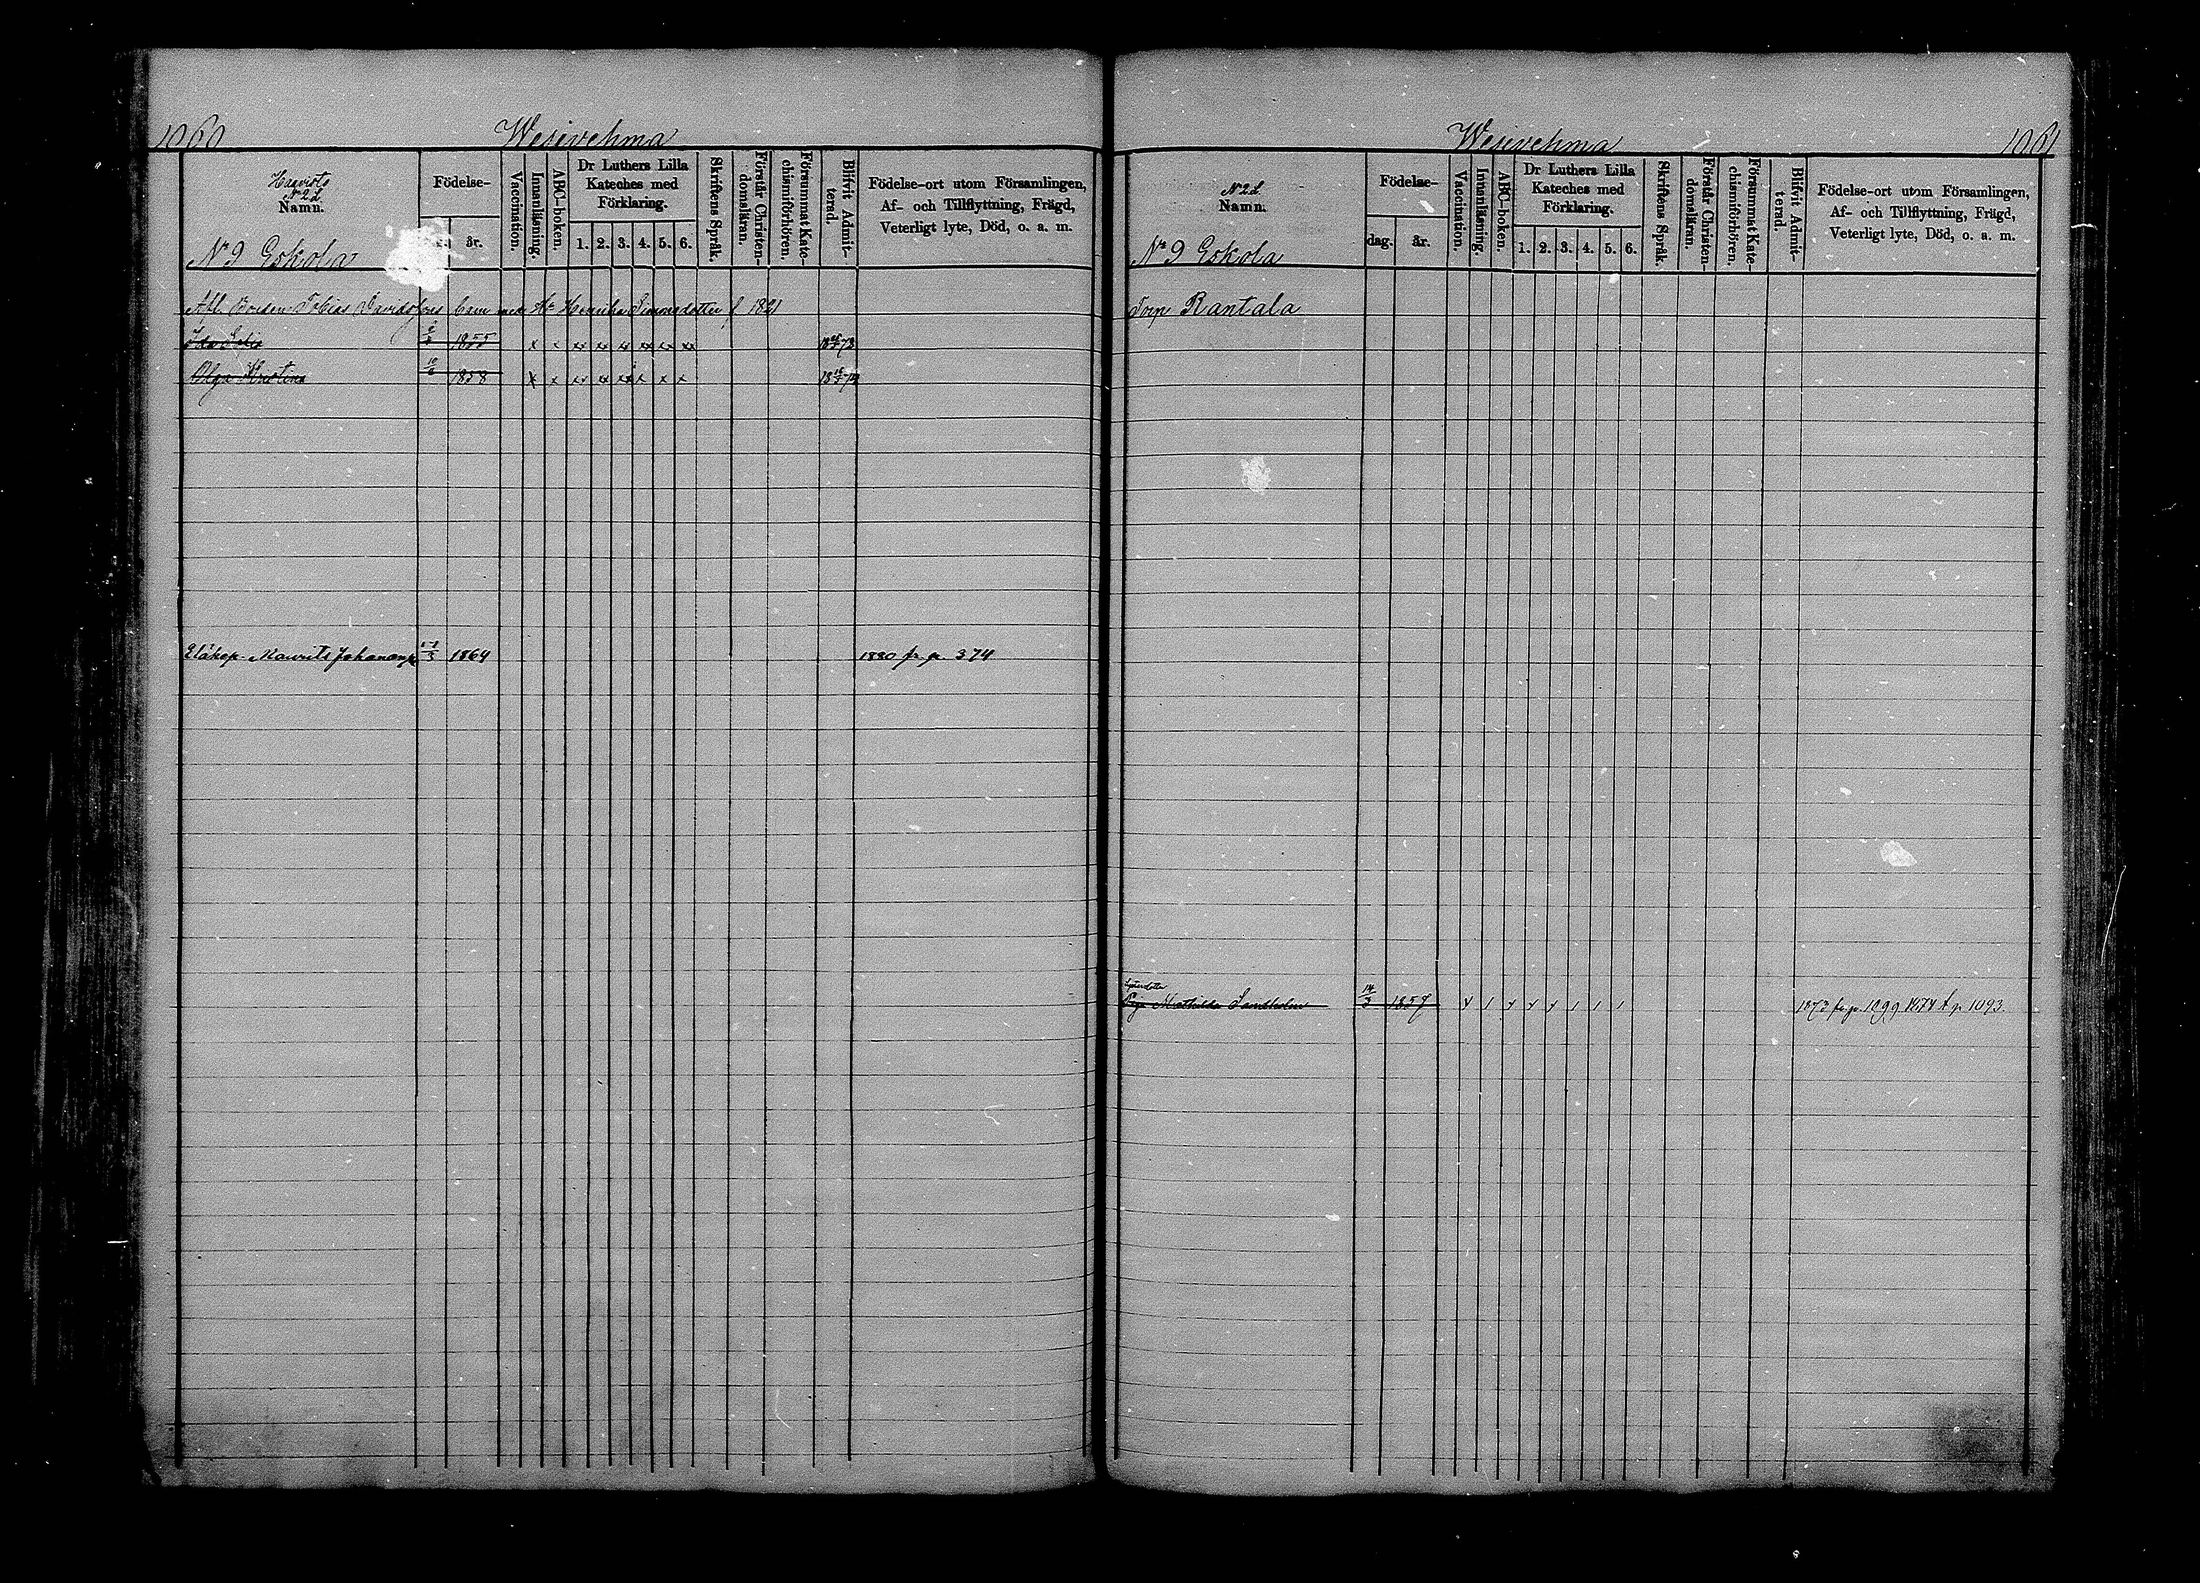 1060
Wesivehma
Haavisto
N:o 2 d
Namn.
Födelse-
år.
Vaccination.
Innanläsning.
ABC-boken.
Dr Luthers Lilla Kateches med Förklaring.
1. 2. 3. 4. 5. 6.
Skriftens Språk.
Förstår Christendomsläran.
Försummat Katechismiförhören.
Blifvit Admitterad.
Födelse-ort utom Församlingen, Af- och Tillflyttning, Frägd, Veterligt lyte, Död, o. a. m.
N:o 9 Eskola
Tobias Davidssons barn med H:u Henrika Simonsdotter f 1821
Ida 1855 x x x x x x x x
Olga Kristina 10/6 1858 x x x x x x x x
Mawrits Johansson 1864 1880 fr. p. 374
Wesivehma
1061
N:o 2 d
Namn.
Födelse-
dag. år.
Vaccination.
Innanläsning.
ABC-boken.
Dr Luthers Lilla Kateches med Förklaring.
1. 2. 3. 4. 5. 6.
Skriftens Språk.
Förstår Christendomsläran.
Försummat Katechismiförhören.
Blifvit Admitterad.
Födelse-ort utom Församlingen, Af- och Tillflyttning, Frägd, Veterligt lyte, Död, o. a. m.
N:o 9 Eskola
Torp Rantala
Systerdotter
Pig. Mathilda Sandholm 14/3 1857 1873 fr. p. 1099 1874 t. p 1093.